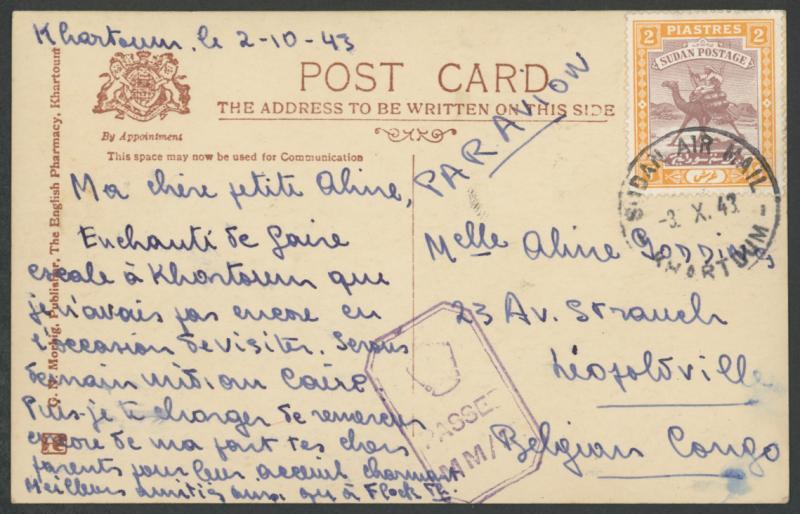 Khartoum, le 2-10-43
POST CARD
THE ADDRESS TO BE WRITTEN ON THIS SIDE
By Appointment
This space may now be used for Communication
G. N. Morhig, Publisher, The English Pharmacy, Khartoum
PAR AVION
2 PIASTRES 2
SUDAN POSTAGE
SUDAN AIR MAIL
-3. X. 43
KHARTOUM
Ma chère petite Aline,
Enchanté de faire
escale à Khartoum que
je n'avais pas encore eu
l'occasion de visiter. Serons
demain midi au Caire.
Puis-je te charger de remercier
encore de ma part tes chers
parents pour leur accueil charmant
Meilleures amitiés ainsi qu'à
Melle Aline
23 Av. Strauch
Léopoldville
Belgian Congo
PASSED
MM/